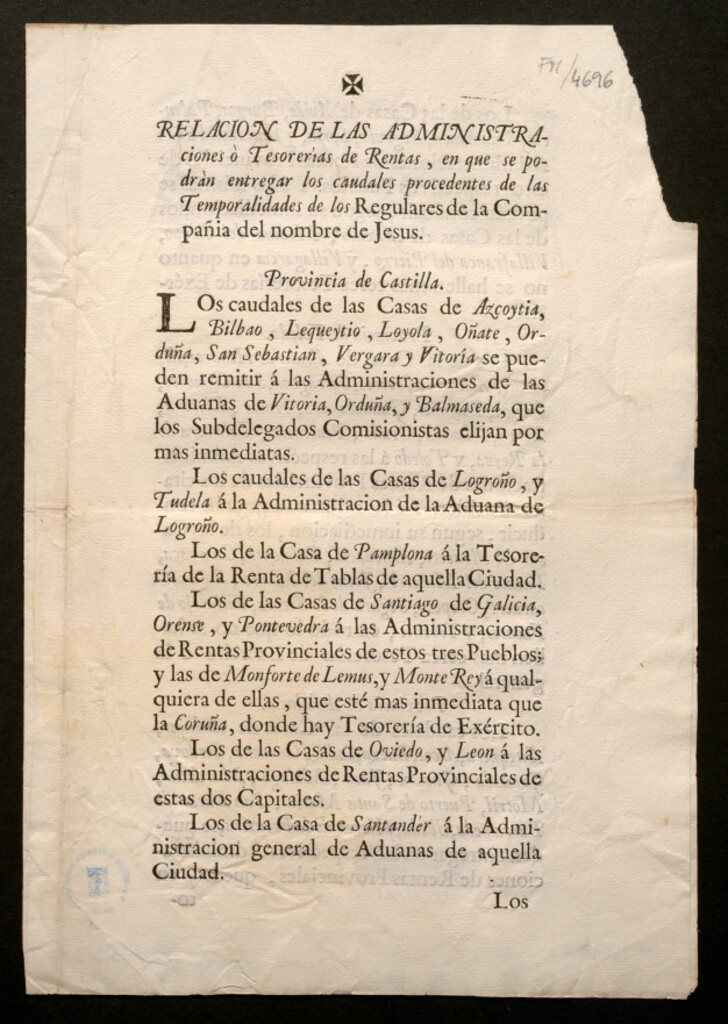 FM/4696
RELACION DE LAS ADMINISTRA-
ciones ò Tesorerìas de Rentas, en que se po-
dràn entregar los caudales procedentes de las
Temporalidades de los Regulares de la Com-
pañia del nombre de Jesus.
Provincia de Castilla.
LOs caudales de las Casas de Azcoytia,
Bilbao, Lequeytio, Loyola, Oñate, Or-
duña, San Sebastian, Vergara y Vitoría se pue-
den remitir á las Administraciones de las
Aduanas de Vitoria, Orduña, y Balmaseda, que
los Subdelegados Comisionistas elijan por
mas inmediatas.
Los caudales de las Casas de Logroño, y
Tudela á la Administracion de la Aduana de
Logroño.
Los de la Casa de Pamplona á la Tesore-
ría de la Renta de Tablas de aquella Ciudad.
Los de las Casas de Santiago de Galicia,
Orense, y Pontevedra á las Administraciones
de Rentas Provinciales de estos tres Pueblos;
y las de Monforte de Lemus, y Monte Rey á qual-
quiera de ellas, que esté mas inmediata que
la Coruña, donde hay Tesorería de Exército.
Los de las Casas de Oviedo, y Leon á las
Administraciones de Rentas Provinciales de
estas dos Capitales.
Los de la Casa de Santander á la Admi-
nistracion general de Aduanas de aquella
Ciudad.
Los